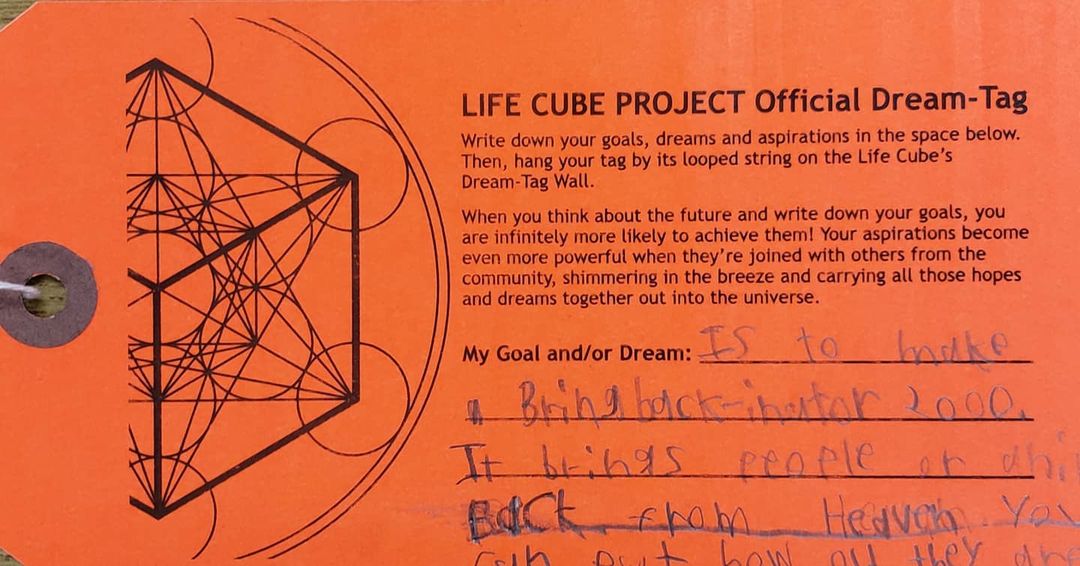 LIFE CUBE PROJECT Official Dream-Tag
Write down your goals, dreams and aspirations in the space below.
Then, hang your tag by its looped string on the Life Cube's
Dream-Tag Wall.
When you think about the future and write down your goals, you
are infinitely more likely to achieve them! Your aspirations become
even more powerful when they're joined with others from the
community, shimmering in the breeze and carrying all those hopes
and dreams together out into the universe.
My Goal and/or Dream: Is to make
a Bringback-inator 2000.
It brings people or ani
Back from Heaven. You
can put how old they are